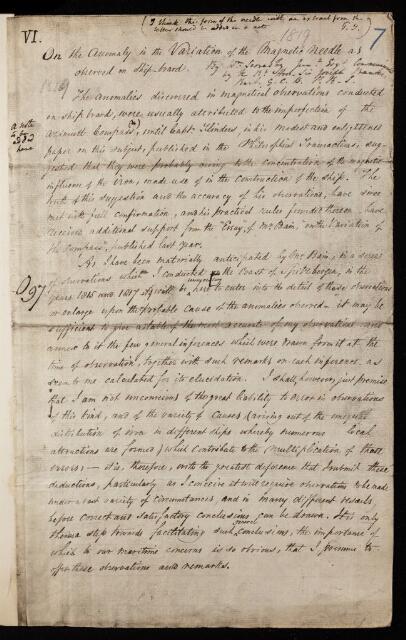 (I think the form of the needle with an extract from the
letter should be added in a note
T. Y.)
VI.
1819
7
On the Anomaly in the Variation of the Magnetic Needle as
observed on Ship-board. By Wm Scoresby Junr Esqr Communicated
by the Rt Honl Sir Joseph Banks
Bart G.C.B. P.R.S.
1819
The Anomalies discovered in magnetical observations conducted
on ship board, were usually attributed to the imperfection of the
Azimuth Compass, until Captn Flinders, in his modest and enlightened
a note
to
282
here
paper on this subject, published in the Philosophical Transactions, sug-
gested that they were probably owing to the concentration of the magnetic
influence of the iron, made use of in the construction of the ship. The
truth of this suggestion and the accuracy of his observations, have since
met with full confirmation, and his practical rules founded thereon, have
received additional support from the "Essay, of Mr Bain, on the Variation of
the Compass", published last year.
As I have been materially anticipated by Mr Bain, in a series
of observations which I conducted on the coast of Spitzbergen, in the
97
years 1815 and 1817, it will be unnecessary to enter into the detail of those observations
or enlarge upon the probable cause of the anomalies observed – it may be
sufficient to give a table of the most accurate of my observations and
annex to it the few general inferences which were drawn from it at the
time of observation, together with such remarks on each inference as
seem to me calculated for its elucidation. I shall, however, just premise
that I am not unconscious of the great liability to error in observations
of this kind, and of the variety of causes (arising out of the unequal
distribution of iron in different ships whereby numerous local
attractions are formed) which contribute to the multiplication of those
errors; – it is, therefore, with the greatest deference that I submit these
deductions, particularly as I conceive it will require observations to be made
under a vast variety of circumstances, and in many different vessels,
before correct and satisfactory conclusions can be drawn. It is only
a step towards facilitating such correct conclusions, the importance of
which to our maritime concerns is so obvious, that I presume to
offer these observations and remarks.